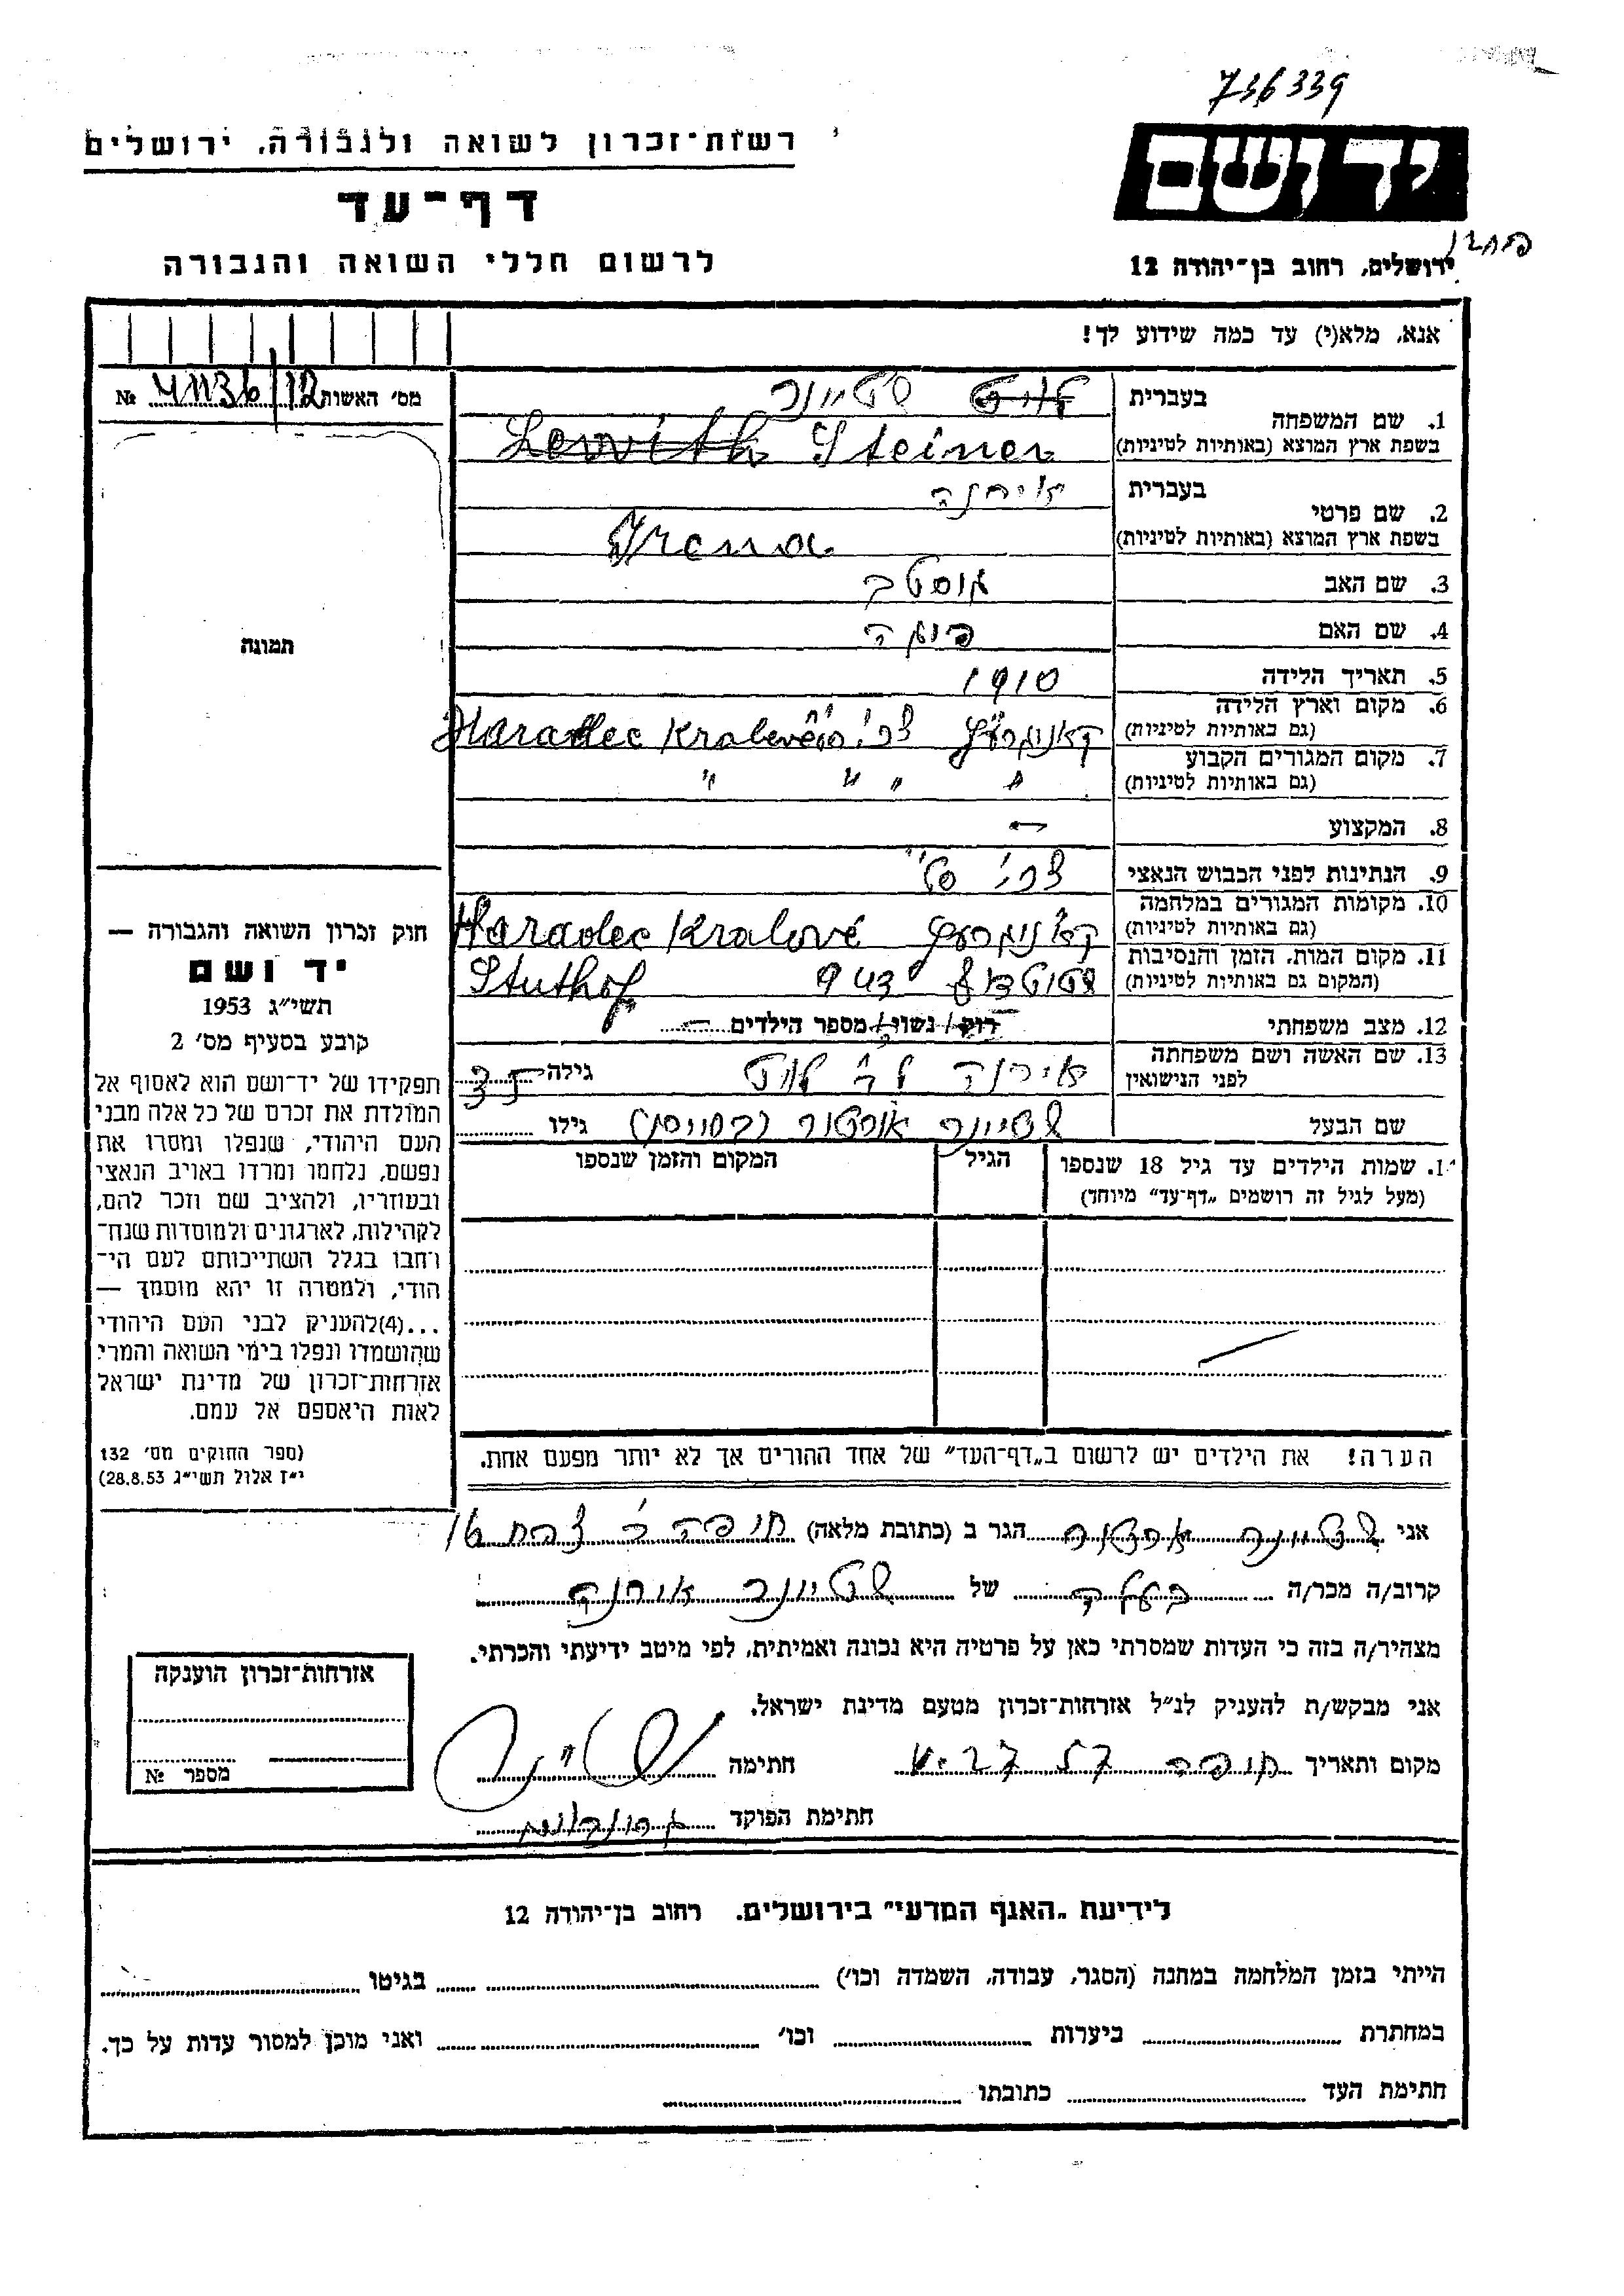 736339
רשות־זכרון לשואה ולגבורה, ירושלים
יד ושם
דף־עד
לרשום חללי השואה והגבורה
ירושלים, רחוב בן־יהודה 12
אנא, מלא(י) עד כמה שידוע לך!
מס׳ האשות 41136/12 №
תמונה
1. שם המשפחה
בעברית לויט שטיינר
בשפת ארץ המוצא (באותיות לטיניות) Lewith Steiner
2. שם פרטי
בעברית אירנה
בשפת ארץ המוצא (באותיות לטיניות) Irena
3. שם האב
4. שם האם
5. תאריך הלידה 1910
6. מקום וארץ הלידה
(גם באותיות לטיניות) Haradec Kralevé
7. מקום המגורים הקבוע
(גם באותיות לטיניות) " " " "
8. המקצוע —
9. הנתינות לפני הכבוש הנאצי
10. מקומות המגורים במלחמה
(גם באותיות לטיניות) Haradec Kralové
11. מקום המות, הזמן והנסיבות
(המקום גם באותיות לטיניות) שטוטהוף 943 Stuthof
12. מצב משפחתי רוק/ נשוי/ מספר הילדים —
13. שם האשה ושם משפחתה
לפני הנישואין אירנה לב׳ לויט גילה 35
שם הבעל שטיינר גילו
14. שמות הילדים עד גיל 18 שנספו
(מעל לגיל זה רושמים „דף־עד״ מיוחד)
הגיל
המקום והזמן שנספו
הערה! את הילדים יש לרשום ב„דף־העד״ של אחד ההורים אך לא יותר מפעם אחת.
חוק זכרון השואה והגבורה —
יד ושם
תשי״ג 1953
קובע בסעיף מס׳ 2
תפקידו של יד־ושם הוא לאסוף אל
המולדת את זכרם של כל אלה מבני
העם היהודי, שנפלו ומסרו את
נפשם, נלחמו ומרדו באויב הנאצי
ובעוזריו, ולהציב שם וזכר להם,
לקהילות, לארגונים ולמוסדות שנח־
רבו בגלל השתייכותם לעם הי־
הודי, ולמטרה זו יהא מוסמך —
...(4)להעניק לבני העם היהודי
שהושמדו ונפלו בימי השואה והמרי
אזרחות־זכרון של מדינת ישראל
לאות היאספם אל עמם.
(ספר החוקים מס׳ 132
י״ז אלול תשי״ג 28.8.53)
אני שטיינר הגר ב (כתובת מלאה)
קרוב/ה מכר/ה בעלה של שטיינר אירנה
מצהיר/ה בזה כי העדות שמסרתי כאן על פרטיה היא נכונה ואמיתית, לפי מיטב ידיעתי והכרתי.
אני מבקש/ת להעניק לנ״ל אזרחות־זכרון מטעם מדינת ישראל.
מקום ותאריך חתימה
חתימת הפוקד
אזרחות־זכרון הוענקה
מספר №
לידיעת „האגף המדעי״ בירושלים. רחוב בן־יהודה 12
הייתי בזמן המלחמה במחנה (הסגר, עבודה, השמדה וכו׳) בגיטו
במחתרת ביערות וכו׳ ואני מוכן למסור עדות על כך.
חתימת העד כתובתו